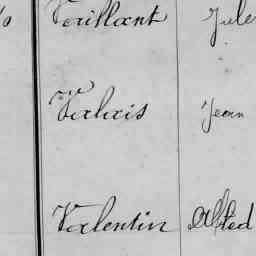 Vaillant Jule
Valais Jean
Valentin Alfred